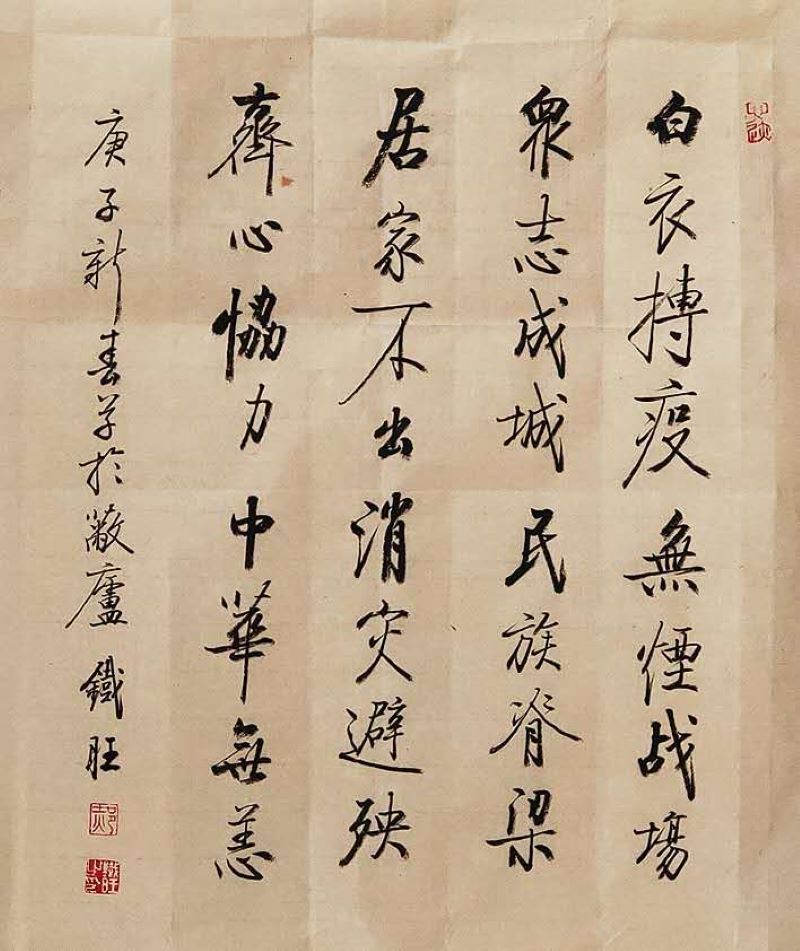 白衣搏疫無煙战場
眾志成城民族脊梁
居家不出消灾避殃
齊心恊力中華無恙
庚子新春草於蔽廬鐵旺